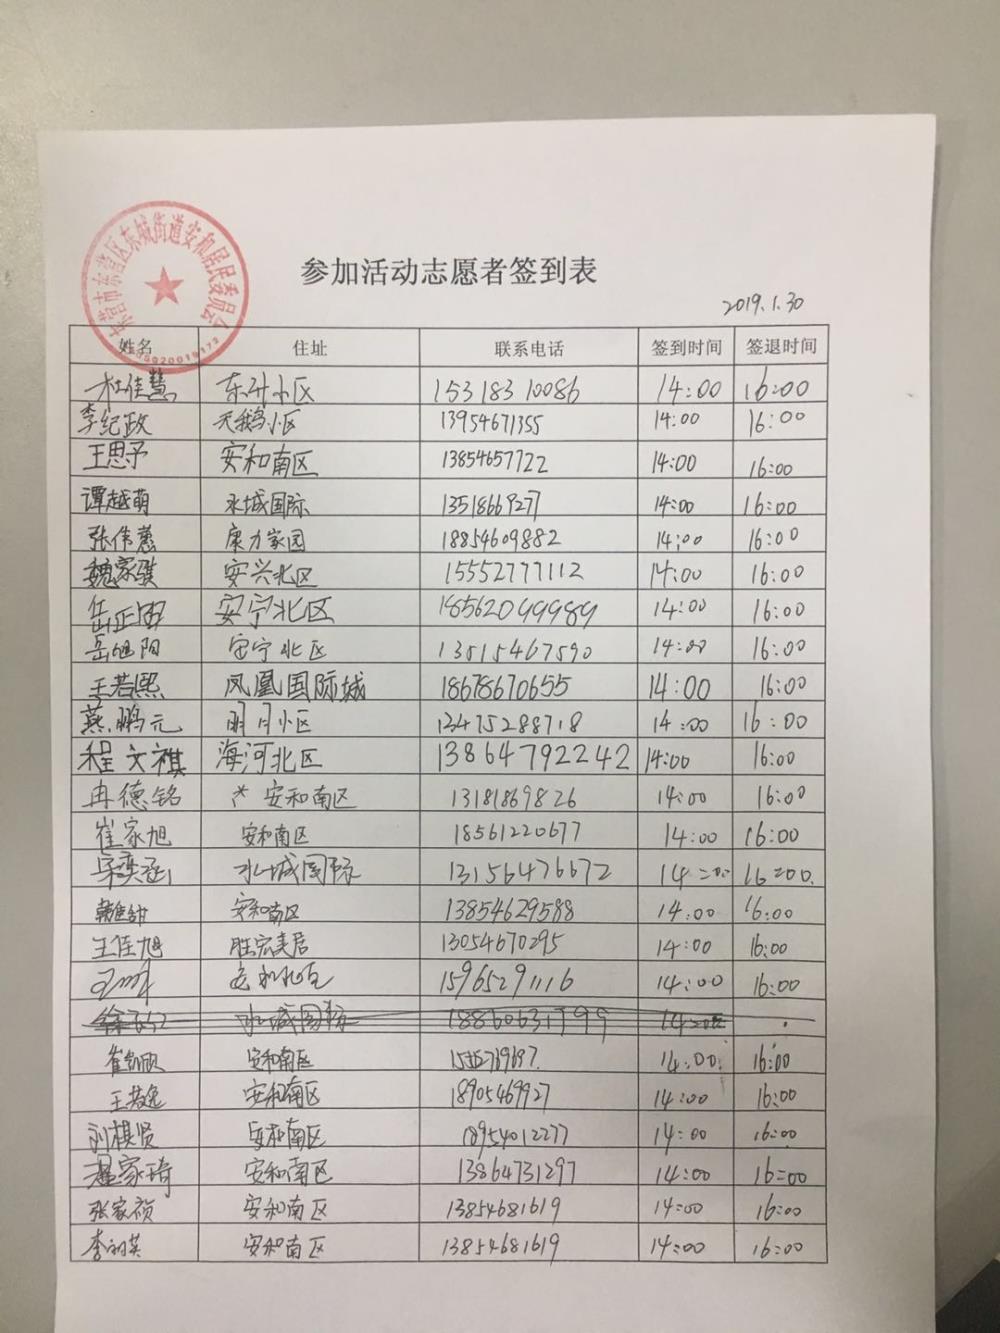 东营市东营区东城街道安和居民委员会
参加活动志愿者签到表
2019.1.30
姓名 住址 联系电话 签到时间 签退时间
杜佳慧 东升小区 15318310086 14:00 16:00
李纪政 天鹅小区 13954671355 14:00 16:00
王思予 安和南区 13854657722 14:00 16:00
谭越萌 水城国际 13518669277 14:00 16:00
张伟蕙 康力家园 18854609882 14:00 16:00
魏家骥 安兴北区 15552777112 14:00 16:00
岳正固 安宁北区 18562099989 14:00 16:00
岳旭阳 安宁北区 13515467590 14:00 16:00
王若熙 凤凰国际城 18678670655 14:00 16:00
燕鹏元 明月小区 13475288718 14:00 16:00
程文祺 海河北区 13864792242 14:00 16:00
冉德铭 安和南区 13181869826 14:00 16:00
崔家旭 安和南区 18561220677 14:00 16:00
宋奕涵 水城国际 13156476672 14:00 16:00.
安和南区 13854629588 14:00 16:00
王佳旭 胜宏美居 13054670295 14:00 16:00
安和北区 15965291116 14:00 16:00
徐 水城国际 14:00
崔凯欣 安和南区 14:00 16:00
王若逸 安和南区 18905469927 14:00 16:00
刘棋贤 安和南区 18954012277 14:00 16:00
温家琦 安和南区 13864731297 14:00 16:00
张家祯 安和南区 13854681619 14:00 16:00
李 英 安和南区 13854681619 14:00 16:00